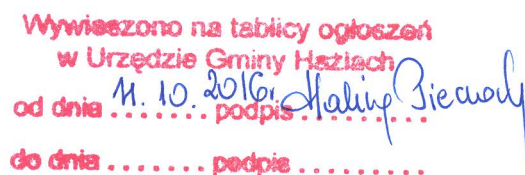 Wywieszono na tablicy ogłoszeń
w Urzędzie Gminy Hażlach
od dnia 11.10.2016r. podpis Halina
do dnia ........ podpis .........